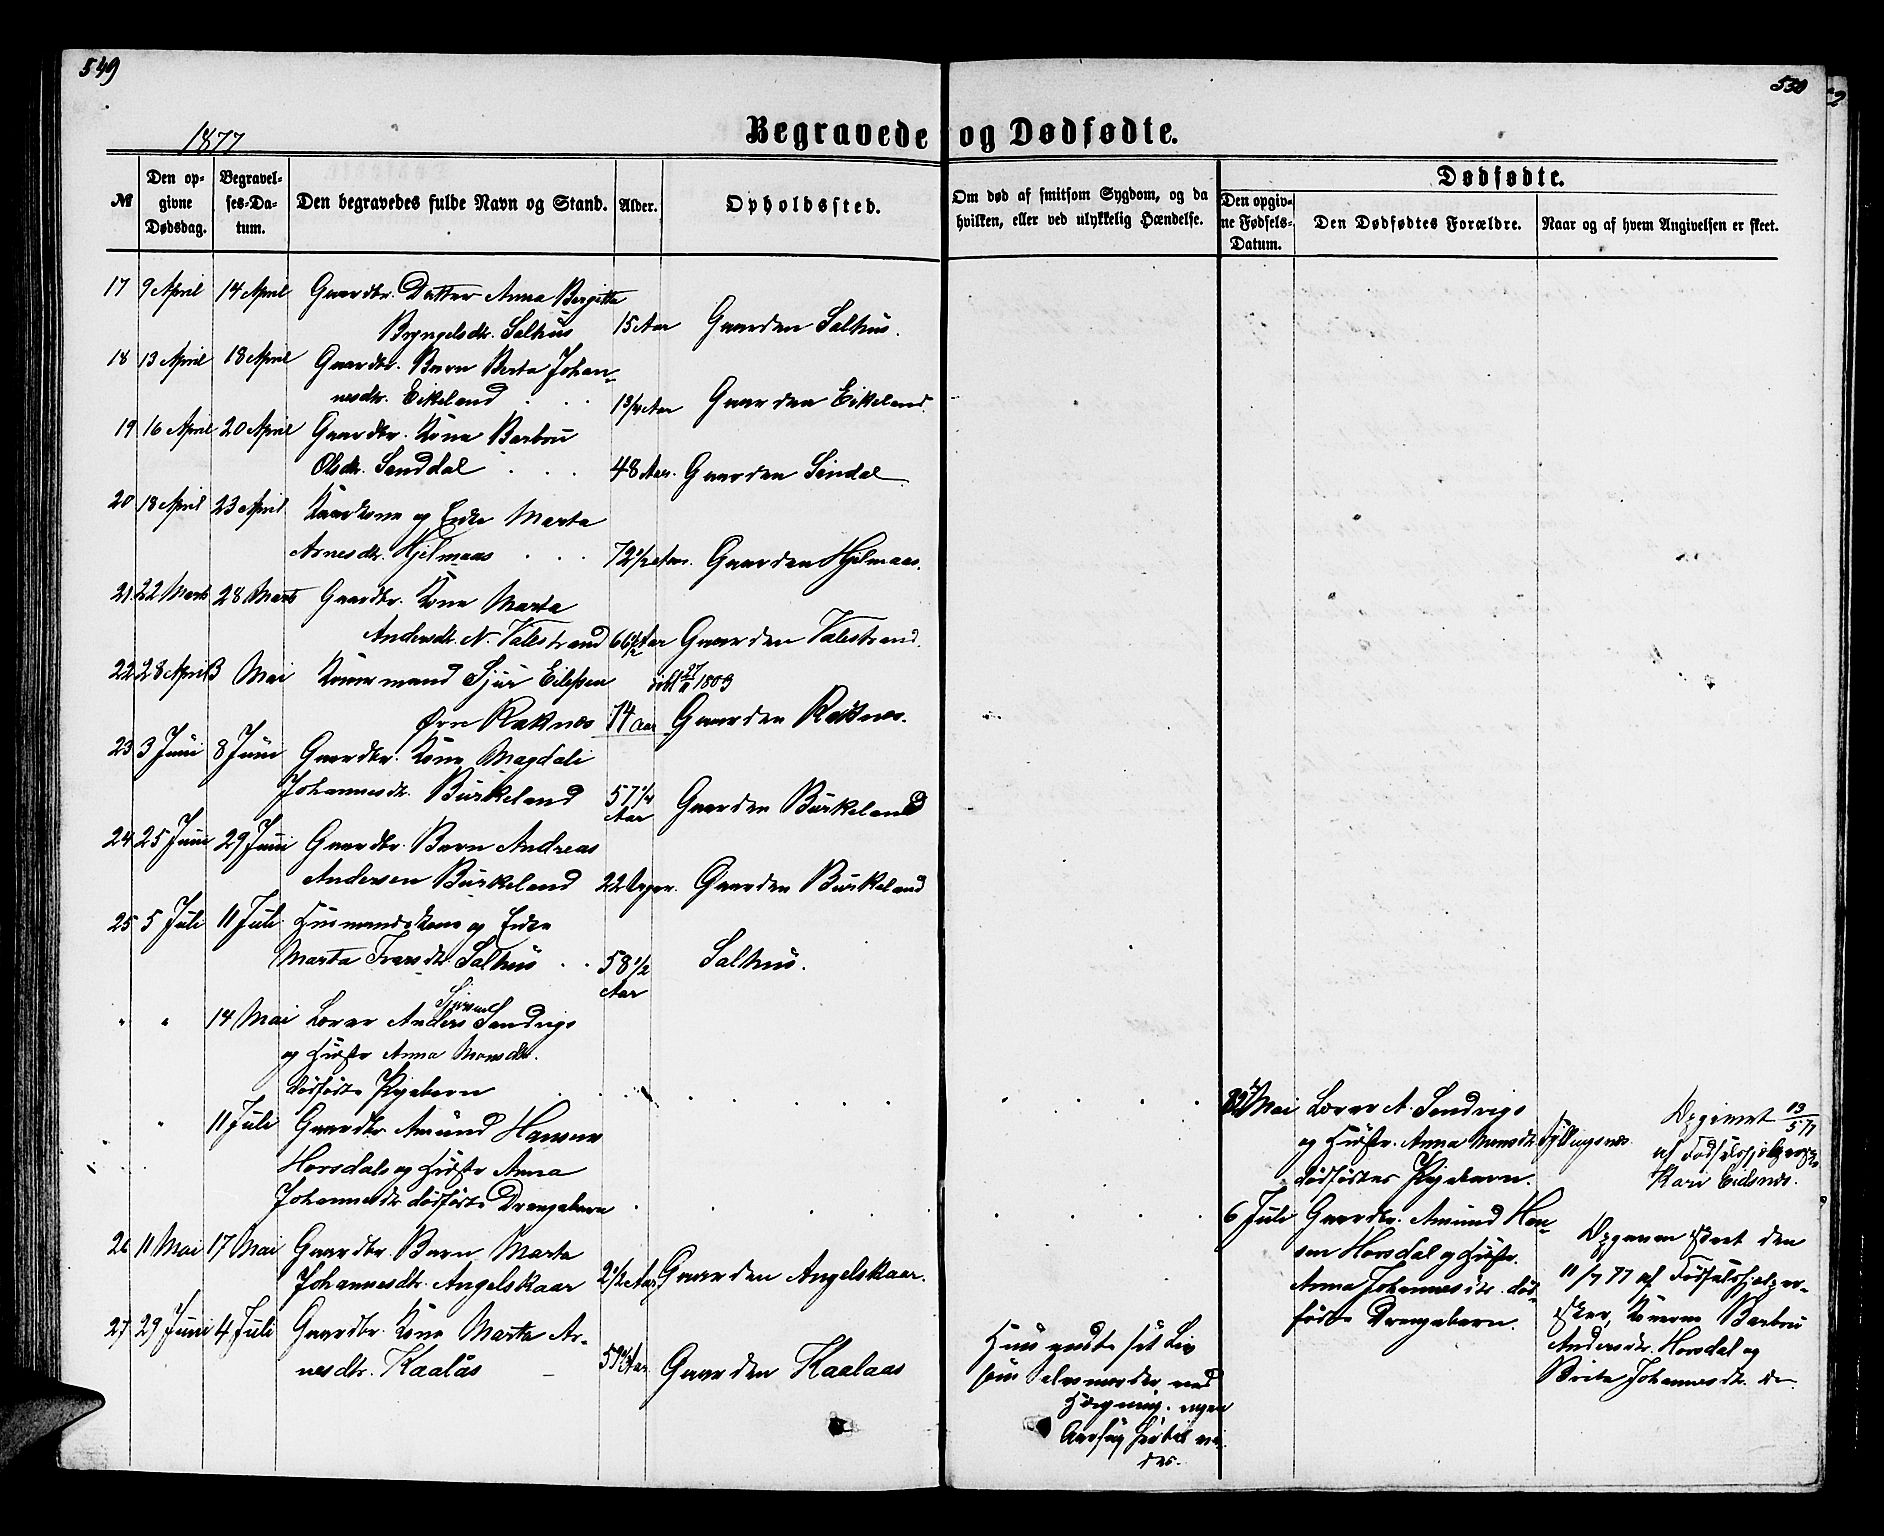 549
550
1877
Begravede og Dødfødte.
№
Den op-
givne
Dødsdag.
Begravel-
ses-Da-
tum.
Den begravedes fulde Navn og Stand.
Alder.
Opholdssted.
Om død af smitsom Sygdom, og da
hvilken, eller ved ulykkelig Hændelse.
Dødfødte.
Den opgiv-
ne Fødsels-
Datum.
Den Dødfødtes Forældre.
Naar og af hvem Angivelsen er skeet.
17 9 April 14 April Gaardbr. Datter Anna Bergitta
Bryngelsdtr. Salhus 15 Aar Gaarden Salhus.
18 13 April 18 April Gaardbr. Barn Berta Johan-
nesdtr. Eikeland 1 3/4 Aar Gaarden Eikeland.
19 16 April 20 April Gaardbr. Kone Barbru
Olsdtr. Senddal 48 Aar. Gaarden Sendal
20 18 April 23 April Kaarkone og Enke Marta
Arnesdtr. Hjelmaas 72 1/2 Aar. Gaarden Hjelmaas.
21. 22 Marts 28 Marts Gaardbr. Kone Marta
Andersdtr. N. Valestrand 66 1/2 Aar Gaarden Valestrand.
22 28 April 3 Mai Kaarmand Sjur Eilefsen
Øvre Raknes 74 Aar Gaarden Raknes.
1803
23 3 Juni 8 Juni Gaardbr. Kone Magdali
Johannesdtr. Birkeland 57 1/4
Aar Gaarden Birkeland
24 25 Juni 29 Juni Gaardbr. Barn Andreas
Andersen Birkeland 22 Uger. Gaarden Birkeland
25 5 Juli 11 Juli Husmandskone og Enke
Marta Ivarsdtr. Salhus 58 1/2
Aar Salhus.
" " 14 Mai Lærer Anders Sjursen Sandvigs
og Hustr. Anna Monsdtr.
dødfødte Pigebarn
" 11 Juli Gaardbr. Amund Hansen
Horsdals og Hustr. Anna
Johannesdtr. dødfødte Drengebarn
Mai Lærer A. Sandvigs
og Hustr. Anna Monsdtr.
dødfødtes Pigebarn.
Opgivet 13/5 77
af Fødselshjelperske
Kari Eidsnes.
6 Juli Gaardbr. Amund Han-
sen Horsdal og Hustr.
Anna Johannesdtr. død-
fødte Drengebarn.
Opgaven skeet den
11/7 77 af Fødselshjelper-
sker, Konerne Barbru
Andersdtr. Horsdal og
Brita Johannesdtr. do.
26 11 Mai 17 Mai Gaardbr. Barn Marta
Johannesdtr. Angelskaar 2 1/2 Aar Gaarden Angelskaar.
27 29 Juni 4 Juli Gaardbr. Kone Marta Ar-
nesdtr. Kaalås Gaarden Kaalaas
Hun endte sit Liv
som selvmorder ved
Hængning.